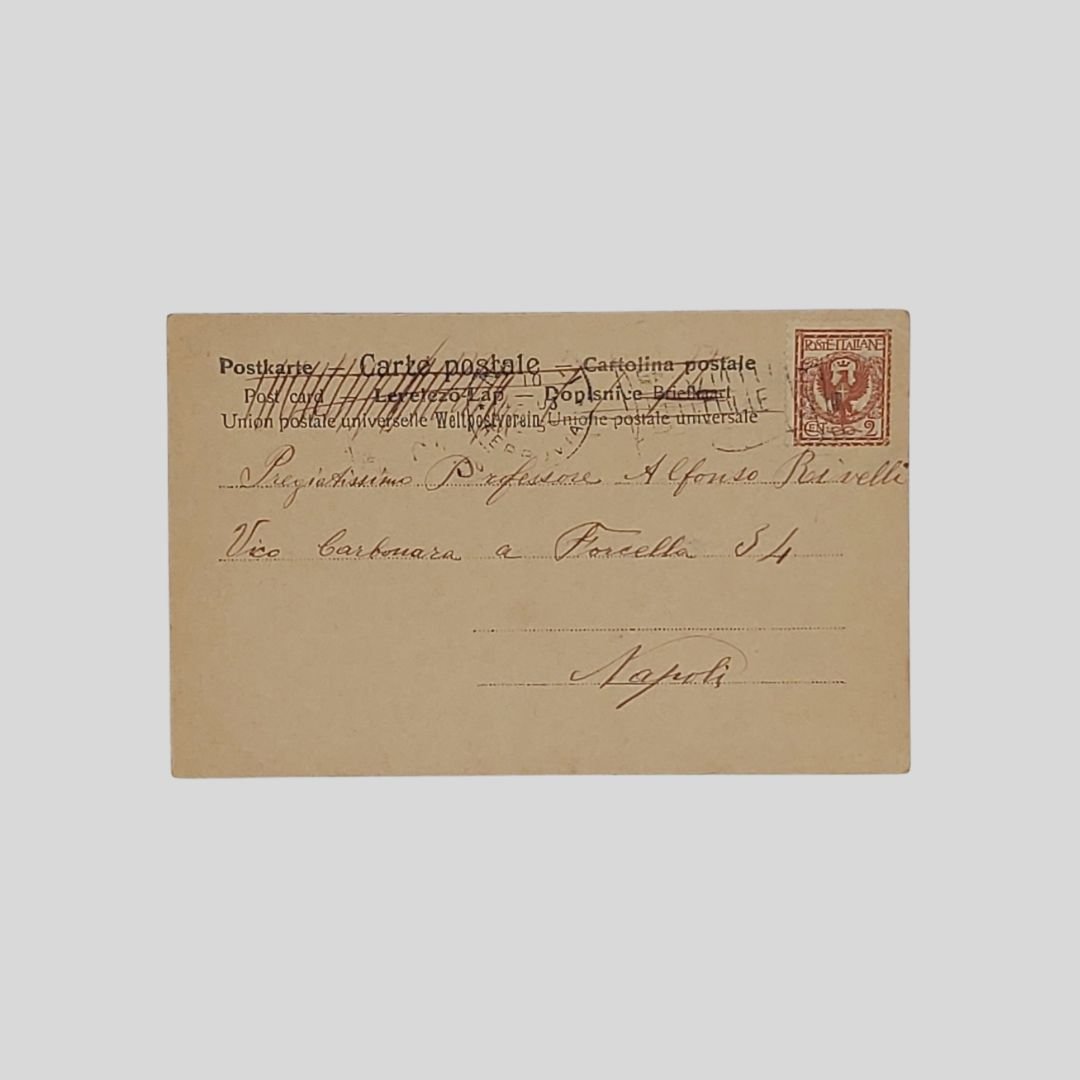 Postkarte — Carte postale — Cartolina postale
Post card — Levelező-Lap — Dopisnice Briefkaart
Union postale universelle Weltpostverein Unione postale universale
POSTE·ITALIANE
CENT. 2
FERROVIA
Pregiatissimo Professore Alfonso Rivelli
Vico Carbonara a Forcella 34
Napoli